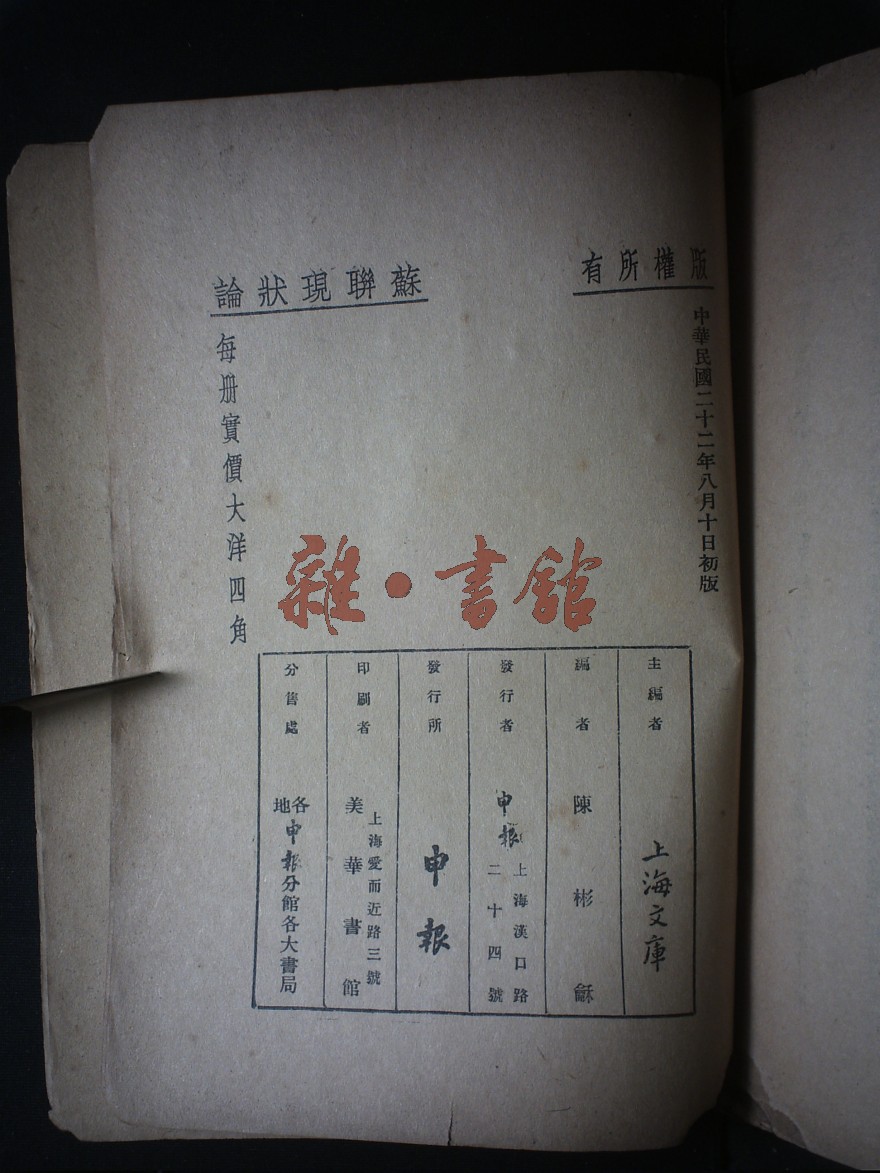 版權所有
中華民國二十二年八月十日初版
蘇聯現狀論
每册實價大洋四角
雜·書館
主編者 上海文庫
編者 陳彬龢
發行者 申報 上海漢口路二十四號
發行所 申報
印刷者 上海愛而近路三號 美華書館
分售處 各地申報分館各大書局